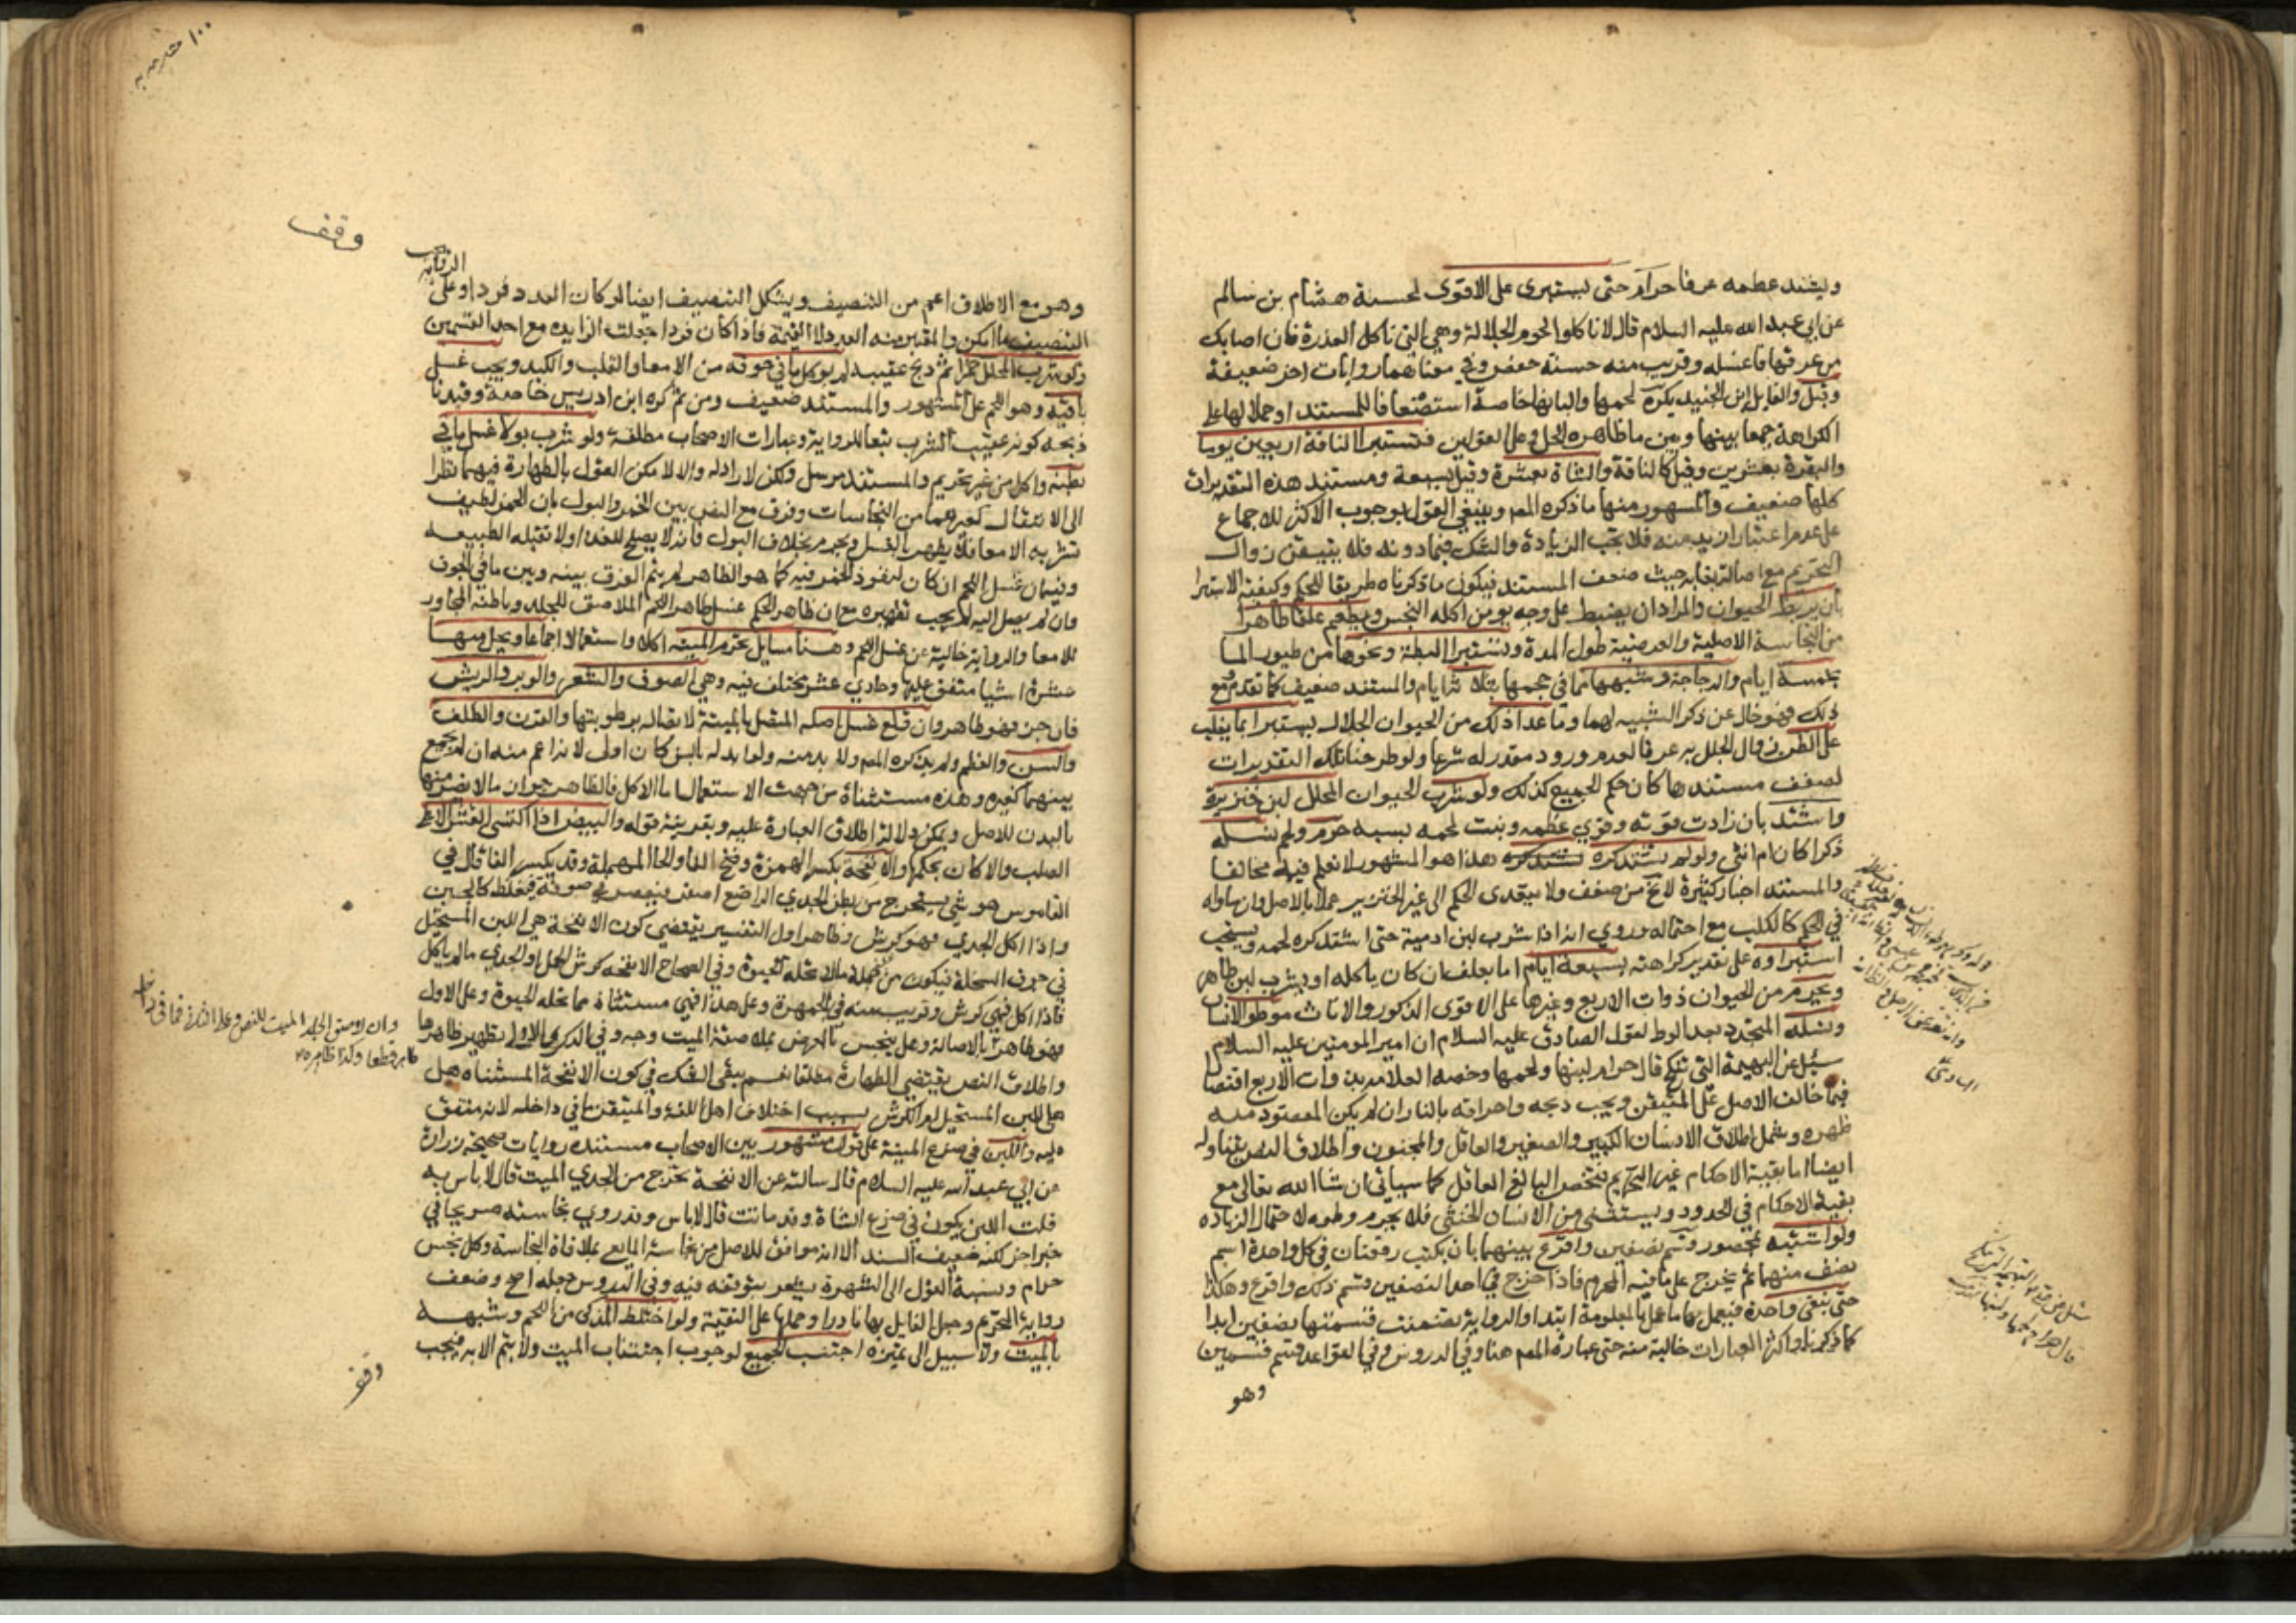 ويشتد عظمه عرفا حرام حتى يستبرى على الاقوى لحسنة هشام بن سالم
عن ابي عبد الله عليه السلام قال لا تاكلوا لحوم الجلالة وهي التي تاكل العذرة فان اصابك
من عرقها فاغسله وقريب منه حسنة حفص وفي معناهما روايات اخر ضعيفة
وقيل والقايل ابن الجنيد يكره لحمها والبانها خاصة استضعافا للمستند او حملا لها على
الكراهة جمعا بينها وبين ما ظاهره الحل وعلى القولين فتستبرا الناقة اربعين يوما
والبقرة بعشرين وقيل كالناقة والشاة بعشرة وقيل بسبعة ومستند هذه التقديرات
كلها ضعيف والمشهور منها ما ذكره المص وينبغي القول بوجوب الاكثر للاجماع
على عدم اعتبار ازيد منه فلا يجب الزيادة والشك فيما دونه فلا يتيقن زوال
التحريم مع اصالة بقايه حيث ضعف المستند فيكون ما ذكرناه طريقا للحكم وكيفية الاستبرا
بان يربط الحيوان والمراد ان يضبط على وجه يومن اكله النجس ويطعم علفا طاهرا
من النجاسة الاصلية والعرضية طول المدة وتستبرا البطة ونحوها من طيور الما
بخمسة ايام والدجاجة وشبهها مما في حجمها بثلاثة ايام والمستند ضعيف كما تقدم مع
ذلك فهو خال عن ذكر الشبيه لهما وما عدا ذلك من الحيوان الجلال يستبرا بما يغلب
على الظن زوال الجلل به عرفا لعدم ورود مقدر له شرعا ولو طرحنا تلك التقديرات
لضعف مستندها كان حكم الجميع كذلك ولو شرب الحيوان المحلل لبن خنزيرة
واشتد بان زادت قوته وقوي عظمه ونبت لحمه بسببه حرم ولحم نسله
ذكرا كان ام انثى ولو لم يشتد كره هذا هو المشهور لا نعلم فيه مخالفا
والمستند اخبار كثيرة لا تخ من ضعف ولا يتعدى الحكم الى غير الخنزير عملا بالاصل وان ساواه
في الحكم كالكلب مع احتماله وروي انه اذا شرب لبن ادمية حتى اشتد كره لحمه ويستحب
استبراوه على تقدير كراهته بسبعة ايام اما بعلف ان كان ياكله او بشرب لبن طاهر
ويحرم من الحيوان ذوات الاربع وغيرها على الاقوى الذكور والاناث موطو الانسان
ونسله المتجدد بعد الوط لقول الصادق عليه السلام ان امير المومنين عليه السلام
سئل عن البهيمة التي تنكح قال حرام لبنها ولحمها وخصه العلامة بذوات الاربع اقتصارا
فيما خالف الاصل على المتيقن ويجب ذبحه واحراقه بالنار ان لم يكن المقصود منه
ظهره وشمل اطلاق الانسان الكبير والصغير والعاقل والمجنون واطلاق النص يتناوله
ايضا اما بقية الاحكام غير التحريم فتختص البالغ العاقل كما سياتي ان شا الله تعالى مع
بقية الاحكام في الحدود ويستثنى من الانسان الخنثى فلا يحرم وطوه لاحتمال الزياده
ولو اشتبه بمحصور قسم نصفين واقرع بينهما بان يكتب رقعتان في كل واحدة اسم
نصف منهما ثم يخرج على ما فيه المحرم فاذا خرج في احد النصفين قسم ذلك واقرع وهكذا
حتى تبقى واحدة فيعمل بها ما عمل بالمعلومة ابتدا والرواية تضمنت قسمتها نصفين ابدا
كما ذكرناه واكثر العبارات خالية منه حتى عبارة المص هنا وفي الدروس وفي القواعد قسم قسمين
وهو
سئل عن البهيمة التي تنكح
قال حرام لحمها ولبنها
وقف
وهو مع الاطلاق اعم من التنصيف ويشكل التنصيف ايضا لو كان العدد فردا وعلى
الرواية يجب
التنصيف ما امكن والمعتبر منه العدد لا القيمة فاذا كان فردا جعلت الزايدة مع احد القسمين
ولو شرب المحلل خمرا ثم ذبح عقيبه لم يوكل ما في جوفه من الامعا والقلب والكبد ويجب غسل
باقيه وهو اللحم على المشهور والمستند ضعيف ومن ثم كره ابن ادريس خاصة وقيدنا
ذبحه كونه عقيب الشرب تبعا للرواية وعبارات الاصحاب مطلقة ولو شرب بولا غسل ما في
بطنه واكل من غير تحريم والمستند مرسل ولكن لا راد له والا لامكن القول بالطهارة فيهما نظرا
الى الانتقال كغيرهما من النجاسات وفرق مع النص بين الخمر والبول بان الخمر لطيف
تشربه الامعا فلا يطهر بالغسل ويحرم بخلاف البول فانه لا يصلح للغذا ولا تقبله الطبيعه
وفيه ان غسل اللحم ان كان لنفوذ الخمر فيه كما هو الظاهر لم يتم الفرق بينه وبين ما في الجوف
وان لم يصل اليه لم يجب تطهيره مع ان ظاهر الحكم غسل ظاهر اللحم الملاصق للجلد وباطنه المجاور
للامعا والرواية خالية عن غسل اللحم وهنا مسايل تحرم الميتة اكلا واستعمالا اجماعا ويحل منها
عشرة اشيا متفق عليها وحادي عشر مختلف فيه وهي الصوف والشعر والوبر والريش
فان جز فهو طاهر وان قلع غسل اصله المتصل بالميتة لاتصاله برطوبتها والقرن والظلف
والسن والعظم ولم يذكره المص ولا بد منه ولو ابدله بالسن كان اولى لانه اعم منه ان لم يجمع
بينهما كغيره وهذه مستثناة من جهة الاستعمال اما الاكل فالظاهر جواز ما لا يضر منها
بالبدن للاصل ويمكن دلالة اطلاق العبارة عليه وبقرينة قوله والبيض اذا اكتسى القشر الاعلى
الصلب والا كان بحكمها والانفحة بكسر الهمزة وفتح الفا والحا المهملة وقد يكسر الفا قال في
القاموس هو شي يستخرج من بطن الجدي الراضع اصفر فيعصر في صوفة فيغلظ كالجبن
واذا اكل الجدي فهو كرش وظاهر اول التفسير يقتضي كون الانفحة هي اللبن المستحيل
في جوف السخلة فيكون من جملة ما لا تحله الحيوة وفي الصحاح الانفحه كرش الحمل او الجدي مالم ياكل
فاذا اكل فهي كرش وقريب منه في الجمهرة وعلى هذا فهي مستثناة مما تحله الحيوة وعلى الاول
فهو طاهر بالاصالة وهل ينجس بالعرض بملاصقة الميت وجه وفي الذكرى الاولى تطهير ظاهرها
واطلاق النص يقتضي الطهارة مطلقا نعم يبقى الشك في كون الانفحة المستثناه هل
هي اللبن المستحيل او الكرش بسبب اختلاف اهل اللغة والمتيقن ما في داخله لانه متفق
عليه واللبن في ضرع الميتة على قول مشهور بين الاصحاب مستنده روايات صحيحة زرارة
عن ابي عبد الله عليه السلام قال سالته عن الانفحة تخرج من الجدي الميت قال لا باس به
قلت اللبن يكون في ضرع الشاة وقد ماتت قال لا باس وقد روي نجاسته صريحا في
خبر اخر لكنه ضعيف السند الا انه موافق للاصل من نجاسة المايع بملاقاة النجاسة وكل نجس
حرام ونسبة القول الى الشهرة يشعر بتوقفه فيه وفي الدروس جعله اصح وضعف
رواية التحريم وجعل القايل بها نادرا وحملها على التقية ولو اختلط الذكي من اللحم وشبهه
بالميت ولا سبيل الى تميزه اجتنب الجميع لوجوب اجتناب الميت ولا يتم الا به فيجب
وان لاصق الجلد الميت للنص وعلى الثاني فما في داخله
طاهر قطعا وكذا ظاهره
وقف